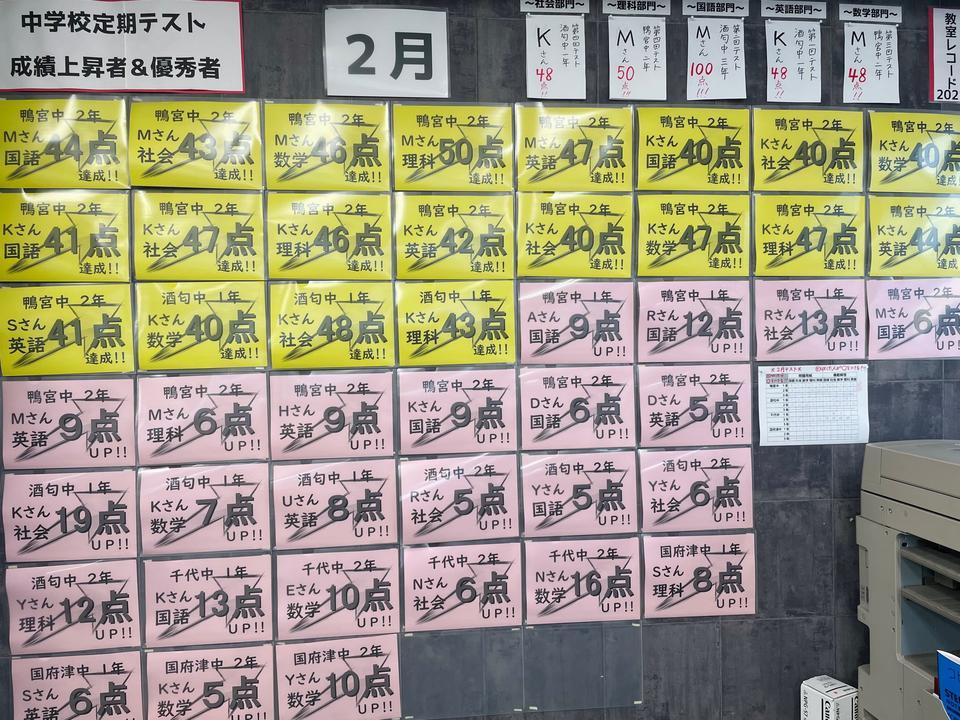 中学校定期テスト
成績上昇者&優秀者
2月
～社会部門～
第四回テスト
酒匂中一年
K
さん
48
点!!
～理科部門～
第四回テスト
鴨宮中二年
M
さん
50
点!!
～国語部門～
第二回テスト
酒匂中三年
M
さん
100
点!!!
～英語部門～
第一回テスト
酒匂中一年
K
さん
48
点!!
～数学部門～
第三回テスト
鴨宮中二年
M
さん
48
点!!
教室レコード
202
鴨宮中 2年
Mさん
国語44点
達成!!
鴨宮中 2年
Mさん
社会43点
達成!!
鴨宮中 2年
Mさん
数学46点
達成!!
鴨宮中 2年
Mさん
理科50点
達成!!
鴨宮中 2年
Mさん
英語47点
達成!!
鴨宮中 2年
Kさん
国語40点
達成!!
鴨宮中 2年
Kさん
社会40点
達成!!
鴨宮中 2年
Kさん
数学40点
達成!!
鴨宮中 2年
Kさん
国語41点
達成!!
鴨宮中 2年
Kさん
社会47点
達成!!
鴨宮中 2年
Kさん
理科46点
達成!!
鴨宮中 2年
Kさん
英語42点
達成!!
鴨宮中 2年
Kさん
社会40点
達成!!
鴨宮中 2年
Kさん
数学47点
達成!!
鴨宮中 2年
Kさん
理科47点
達成!!
鴨宮中 2年
Kさん
英語44点
達成!!
鴨宮中 2年
Sさん
英語41点
達成!!
酒匂中 1年
Kさん
数学40点
達成!!
酒匂中 1年
Kさん
社会48点
達成!!
酒匂中 1年
Kさん
理科43点
達成!!
鴨宮中 1年
Aさん
国語9点
UP!!
鴨宮中 1年
Rさん
国語12点
UP!!
鴨宮中 1年
Rさん
社会13点
UP!!
鴨宮中 2年
Mさん
国語6点
UP!!
鴨宮中 2年
Mさん
英語9点
UP!!
鴨宮中 2年
Mさん
理科6点
UP!!
鴨宮中 2年
Hさん
英語9点
UP!!
鴨宮中 2年
Kさん
国語9点
UP!!
鴨宮中 2年
Dさん
国語6点
UP!!
鴨宮中 2年
Dさん
英語5点
UP!!
酒匂中 1年
Kさん
社会19点
UP!!
酒匂中 1年
Kさん
数学7点
UP!!
酒匂中 1年
Uさん
英語8点
UP!!
酒匂中 2年
Rさん
社会5点
UP!!
酒匂中 2年
Yさん
国語5点
UP!!
酒匂中 2年
Yさん
社会6点
UP!!
酒匂中 2年
Yさん
理科12点
UP!!
千代中 1年
Kさん
国語13点
UP!!
千代中 2年
Eさん
数学10点
UP!!
千代中 2年
Nさん
社会6点
UP!!
千代中 2年
Nさん
数学16点
UP!!
国府津中 1年
Sさん
理科8点
UP!!
国府津中 1年
Sさん
英語6点
国府津中 2年
Kさん
数学5点
国府津中 2年
Yさん
数学10点
UP!!